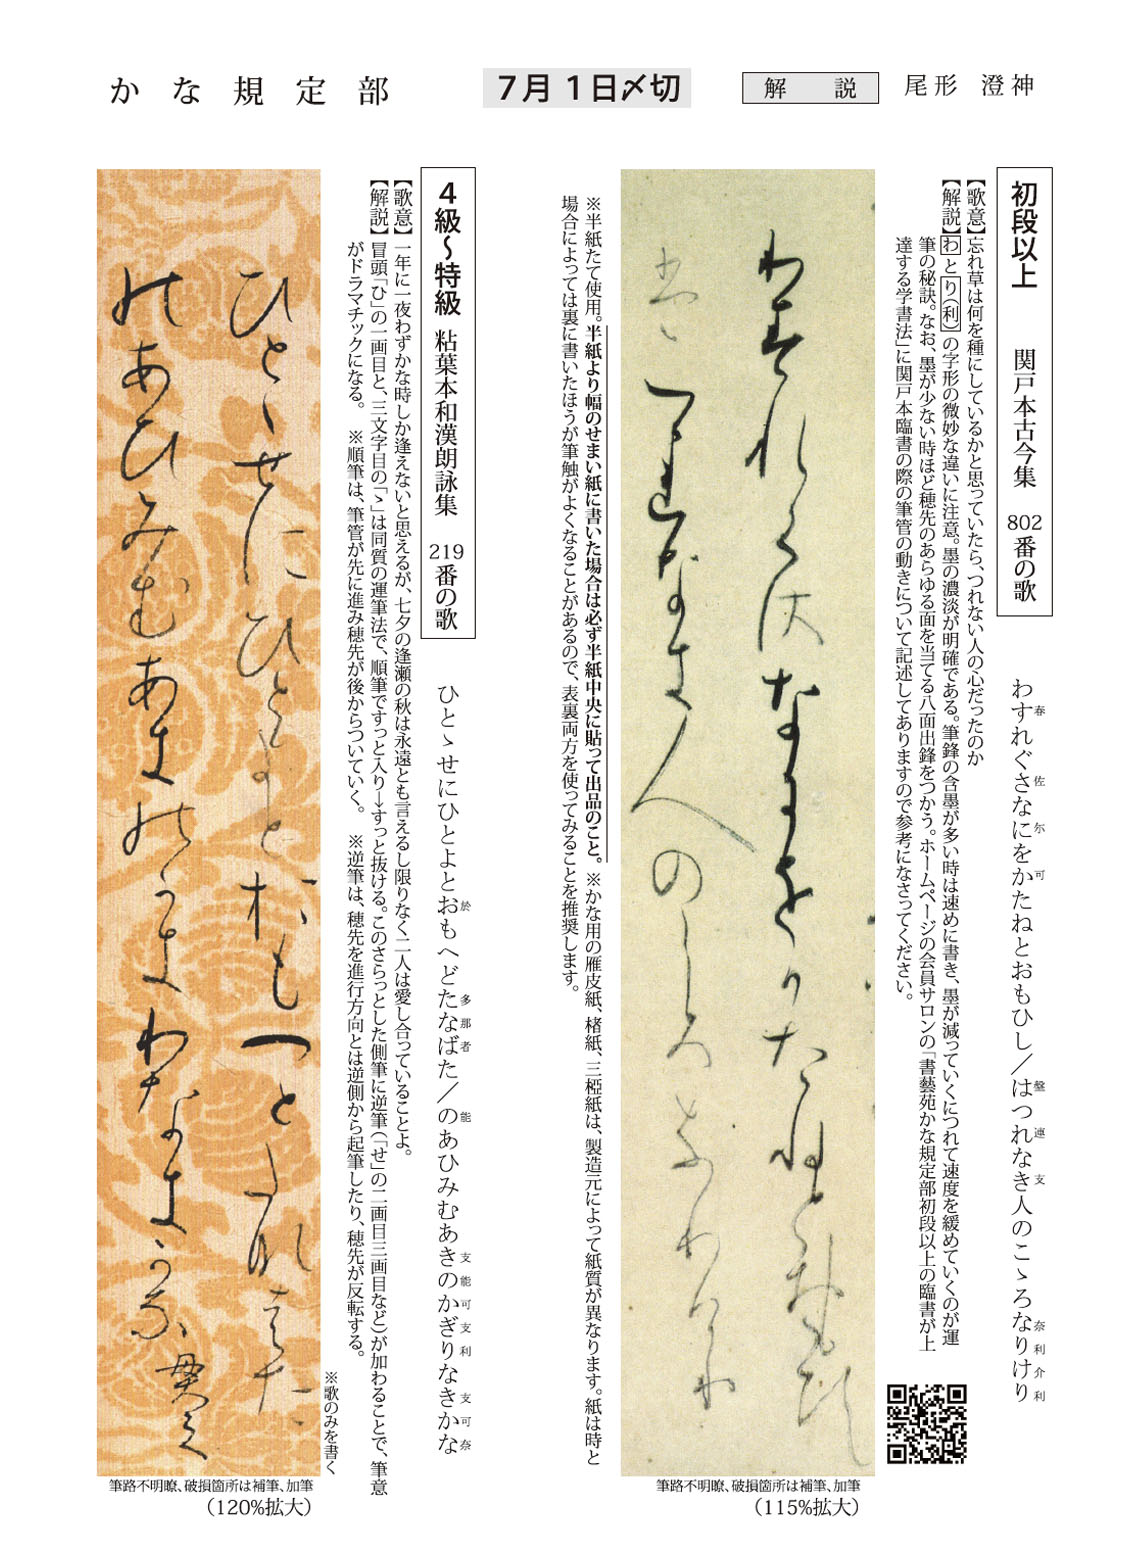 かな規定部
7月1日〆切
解説
尾形 澄神
初段以上 関戸本古今集 802番の歌
わすれぐさなにをかたねとおもひし／はつれなき人のこゝろなりけり
春 佐 尓 可 盤 連 支 奈 利 介 利
【歌意】忘れ草は何を種にしているかと思っていたら、つれない人の心だったのか
【解説】わとり(利)の字形の微妙な違いに注意。墨の濃淡が明確である。筆鋒の含墨が多い時は速めに書き、墨が減っていくにつれて速度を緩めていくのが運
筆の秘訣。なお、墨が少ない時ほど穂先のあらゆる面を当てる八面出鋒をつかう。ホームページの会員サロンの「書藝苑かな規定部初段以上の臨書が上
達する学書法」に関戸本臨書の際の筆管の動きについて記述してありますので参考になさってください。
わ春れく佐な尓を可たねとおもひし
盤つ連な支人のこゝろ奈利介利
筆路不明瞭、破損箇所は補筆、加筆
（115%拡大）
※半紙たて使用。半紙より幅のせまい紙に書いた場合は必ず半紙中央に貼って出品のこと。※かな用の雁皮紙、楮紙、三椏紙は、製造元によって紙質が異なります。紙は時と
場合によっては裏に書いたほうが筆触がよくなることがあるので、表裏両方を使ってみることを推奨します。
4級〜特級 粘葉本和漢朗詠集 219番の歌
ひとゝせにひとよとおもへどたなばた／のあひみむあきのかぎりなきかな
於 多 那 者 能 支 能 可 支 利 支 可 奈
【歌意】一年に一夜わずかな時しか逢えないと思えるが、七夕の逢瀬の秋は永遠とも言えるし限りなく二人は愛し合っていることよ。
【解説】冒頭「ひ」の一画目と、三文字目の「ゝ」は同質の運筆法で、順筆ですっと入り→すっと抜ける。このさらっとした側筆に逆筆（「せ」の二画目三画目など）が加わることで、筆意
がドラマチックになる。 ※順筆は、筆管が先に進み穂先が後からついていく。 ※逆筆は、穂先を進行方向とは逆側から起筆したり、穂先が反転する。
※歌のみを書く
ひとゝせにひとよと於もへと多那者た
能あひみむあ支能可支利な支可奈 貫之
筆路不明瞭、破損箇所は補筆、加筆
（120%拡大）